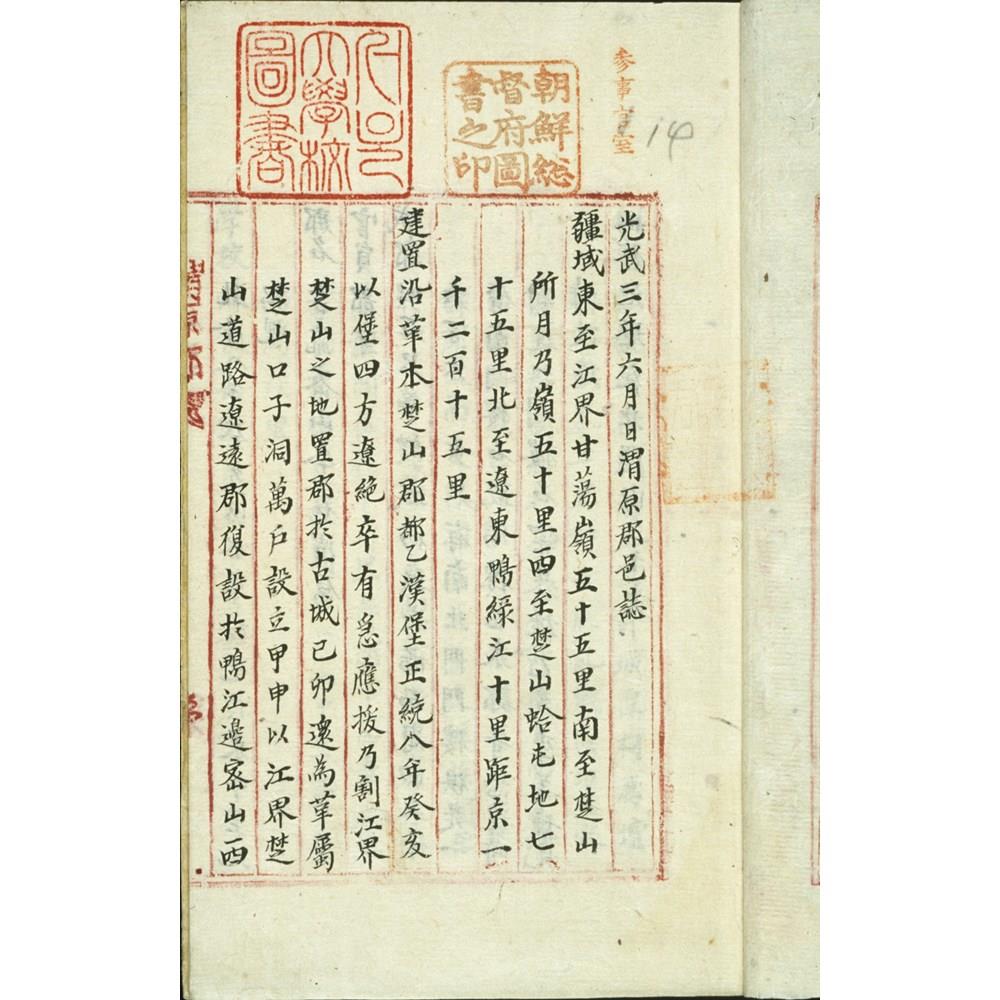 參事官室
14
朝鮮總
督府圖
書之印
大學校
圖書
光武三年六月日渭原郡邑誌
疆域東至江界甘蕩嶺五十五里南至楚山
所月乃嶺五十里西至楚山蛤屯地七
十五里北至遼東鴨綠江十里距京一
千二百十五里
建置沿革本楚山郡都乙漢堡正統八年癸亥
以堡四方遼絶卒有急應援乃割江界
楚山之地置郡於古城已卯還為革屬
楚山口子洞萬戶設立甲申以江界楚
山道路遼遠郡復設於鴨江邉密山西